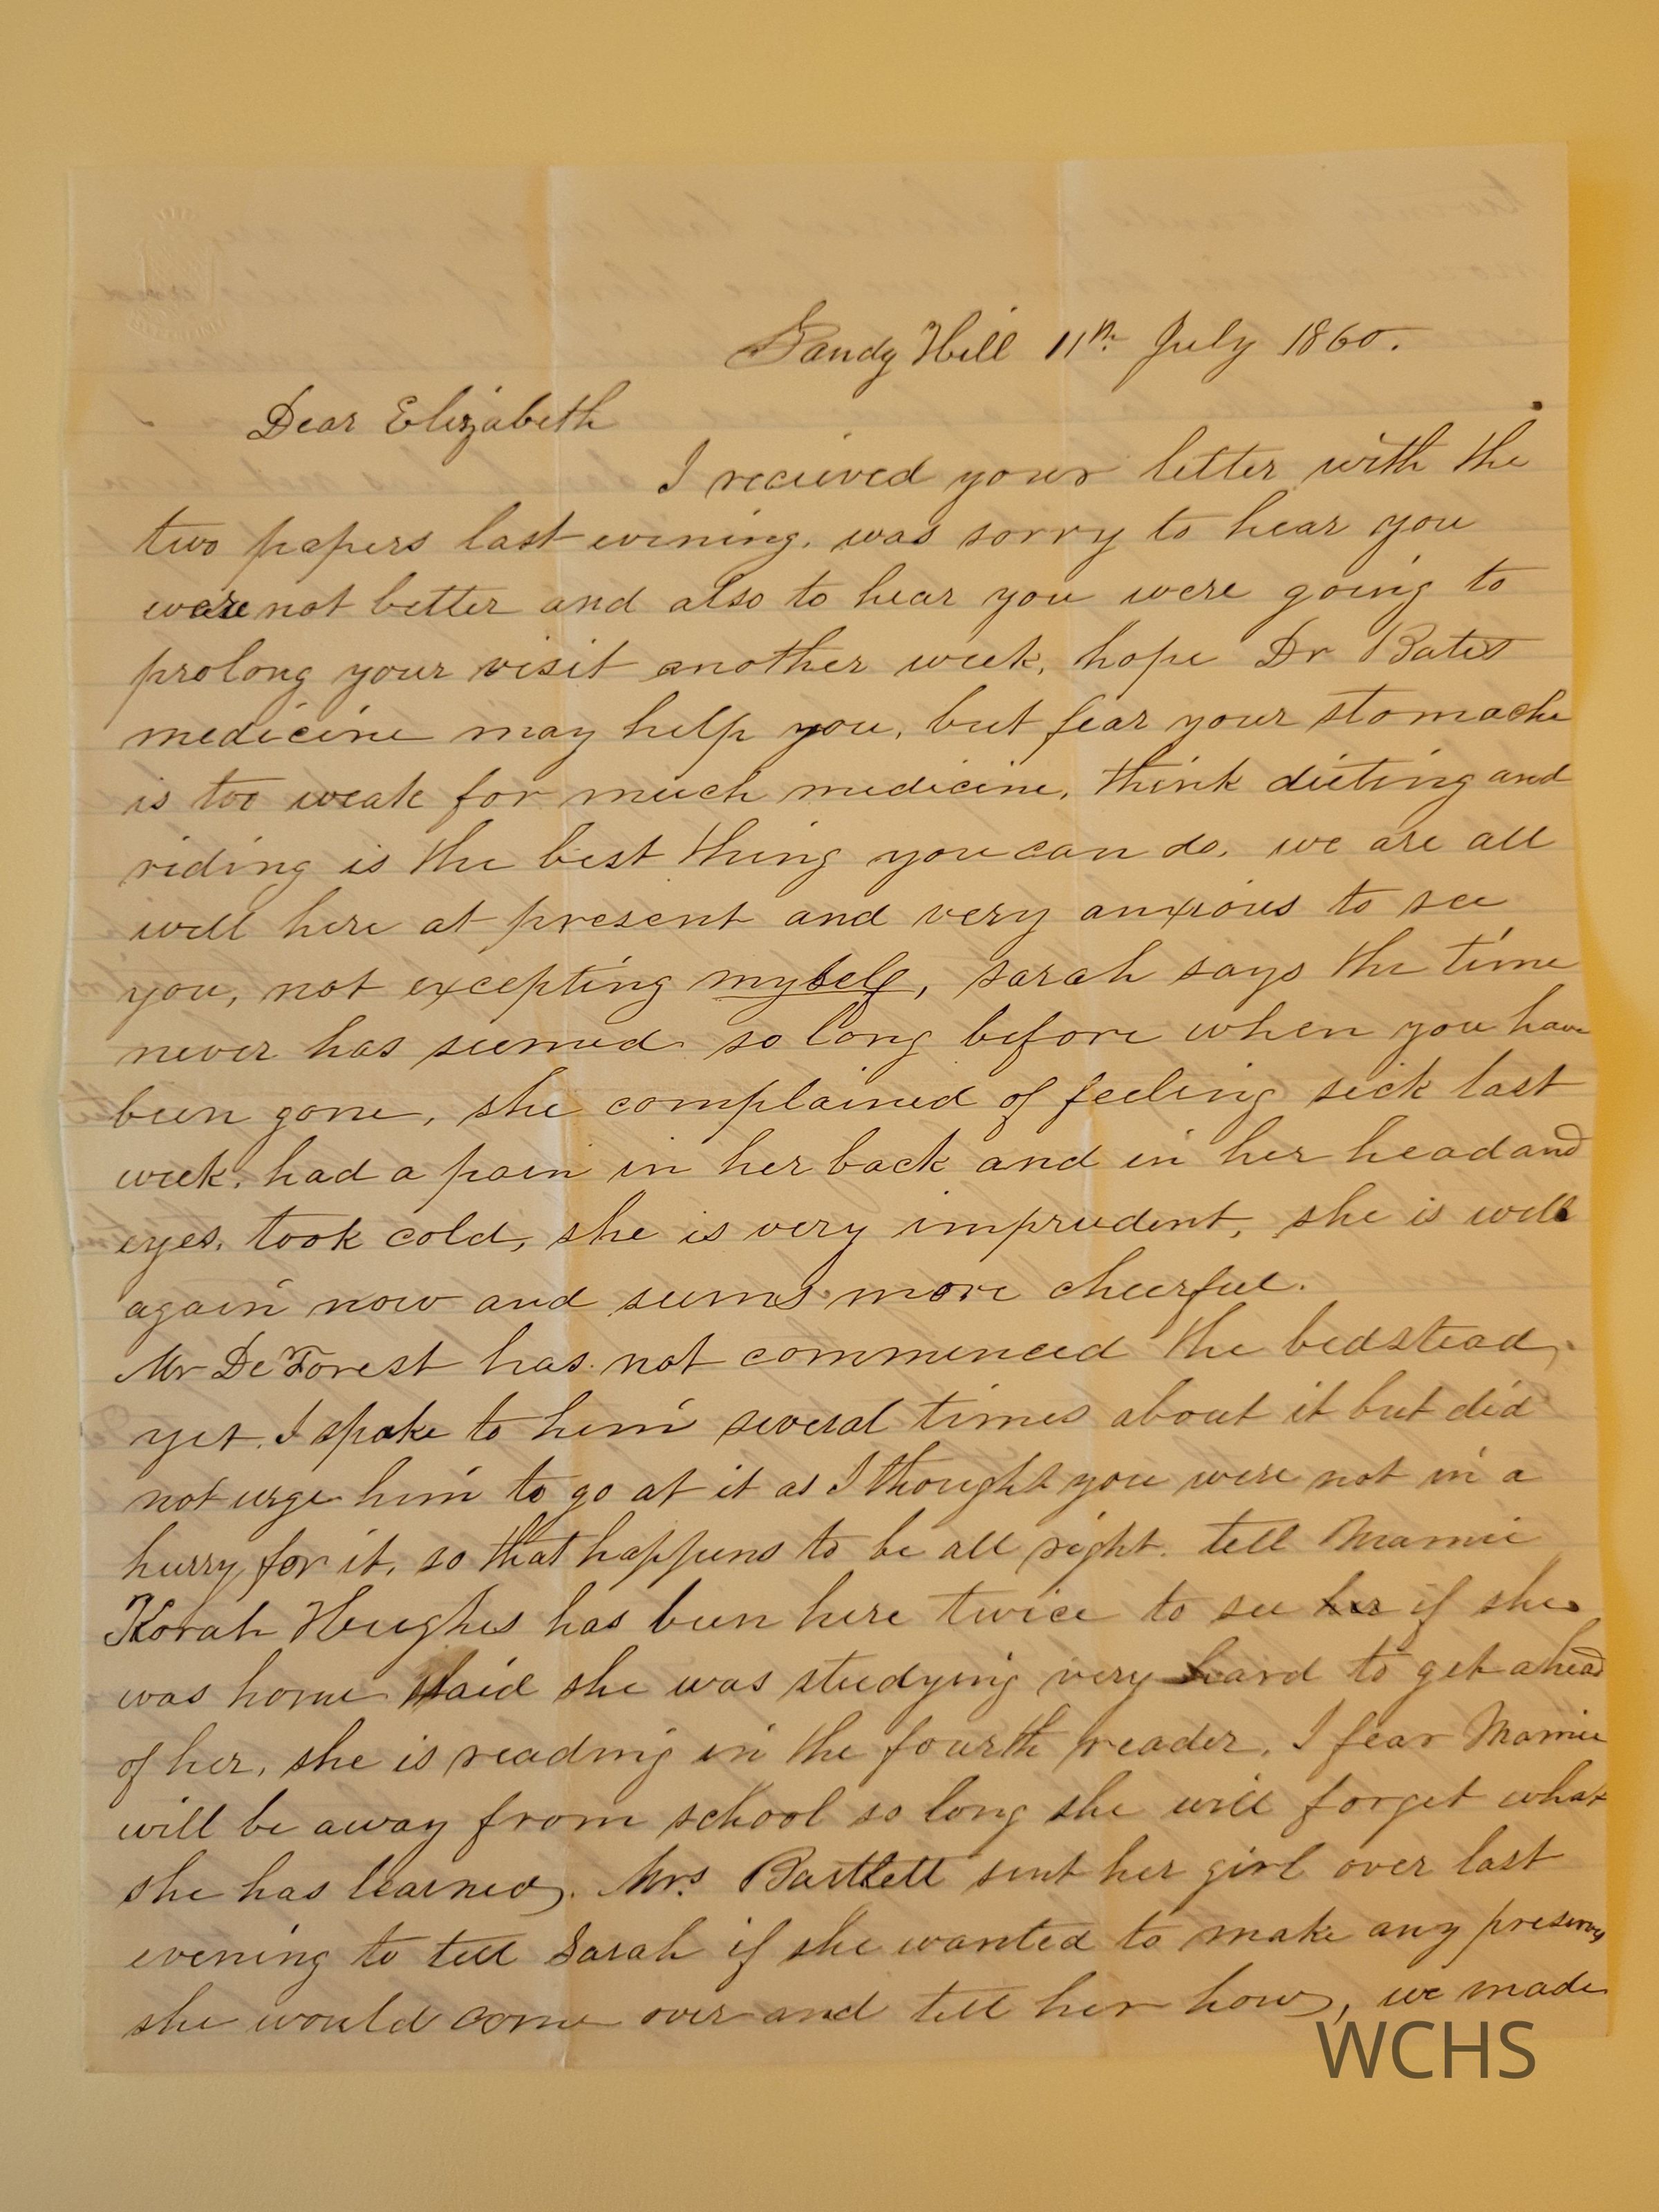 Sandy Hill 11th July 1860.
Dear Elizabeth
I recieved your letter with the
two papers last evening. was sorry to hear you
were not better and also to hear you were going to
prolong your visit another week, hope Dr Bates
medicine may help you, but fear your stomache
is too weak for much medicine, think dieting and
riding is the best thing you can do. we are all
well here at present and very anxious to see
you, not excepting myself, Sarah says the time
never has seemed so long before when you have
been gone, she complained of feeling sick last
week. had a pain in her back and in her head and
eyes. took cold, she is very imprudent, she is well
again now and seems more cheerful.
Mr DeForest has not commenced the bedstead,
yet. I spoke to him several times about it but did
not urge him to go at it as I thought you were not in a
hurry for it, so that happens to be all right. tell Mamie
Korah Hughes has been here twice to see her if she
was home said she was studying very hard to get ahead
of her, she is reading in the fourth reader, I fear Mamie
will be away from school so long she will forget what
she has learned. Mrs. Bartlett sent her girl over last
evening to tell Sarah if she wanted to make any preserves
she would come over and tell her how, we made
WCHS